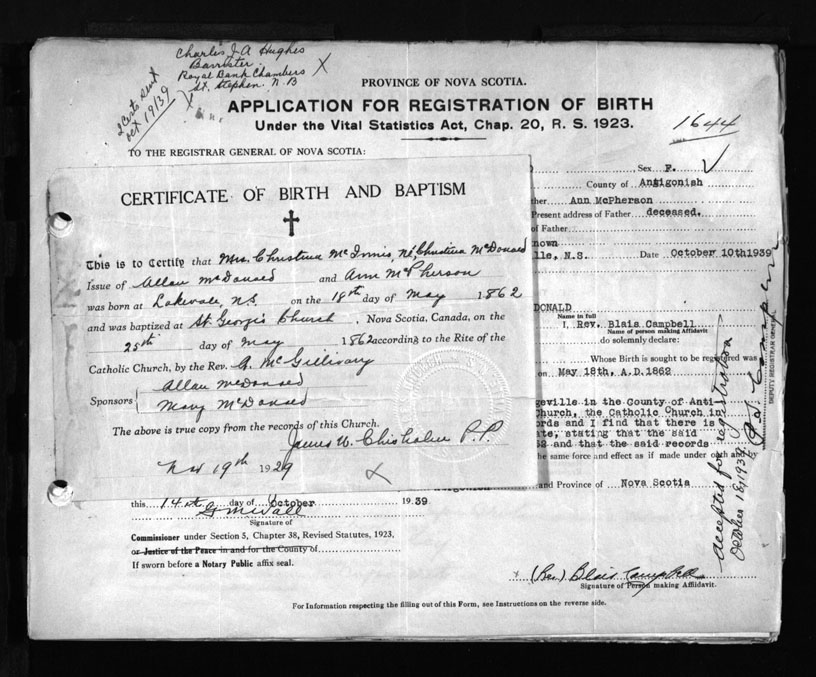 Charles J. A. Hughes
Barrister
Royal Bank Chambers
St. Stephen, N. B
X
2 Certs sent
Oct 19/39
PROVINCE OF NOVA SCOTIA.
APPLICATION FOR REGISTRATION OF BIRTH
Under the Vital Statistics Act, Chap. 20, R. S. 1923.
1644
TO THE REGISTRAR GENERAL OF NOVA SCOTIA:
Sex F.
County of Antigonish
Ann McPherson
Present address of Father deceased.
of Father
nown
lle, N.S. Date October 10th 1939
CERTIFICATE OF BIRTH AND BAPTISM
This is to Certify that Mrs. Christina McInnis, Né, Christina McDonald
Issue of Allan McDonald and Ann McPherson
was born at Lakevale, N.S. on the 18th day of May 1862
and was baptized at St. Georges Church, Nova Scotia, Canada, on the
25th day of May 1862 according to the Rite of the
Catholic Church, by the Rev. A. McGillivary
Sponsors Allan McDonald
Mary McDonald
The above is true copy from the records of this Church.
James W. Chisholm P. P.
Nov 19th 1929
DONALD
Name in full
I, Rev. Blais Campbell
Name of person making Affidavit
do solemnly declare:
Whose Birth is sought to be registered was
on May 18th, A.D. 1862
geville in the County of Anti-
Church, the Catholic Church in
ords and I find that there is
ate, stating that the said
62 and that the said records
he same force and effect as if made under oath and
and Province of Nova Scotia
DEPUTY REGISTRAR GENERAL
accepted for registration
October 18, 1939
this 14th day of October 1939
Signature of
Commissioner under Section 5, Chapter 38, Revised Statutes, 1923,
or Justice of the Peace in and for the County of
If sworn before a Notary Public affix seal.
(Rev.) Blais Campbell
Signature of Person making Affidavit.
For Information respecting the filling out of this Form, see Instructions on the reverse side.